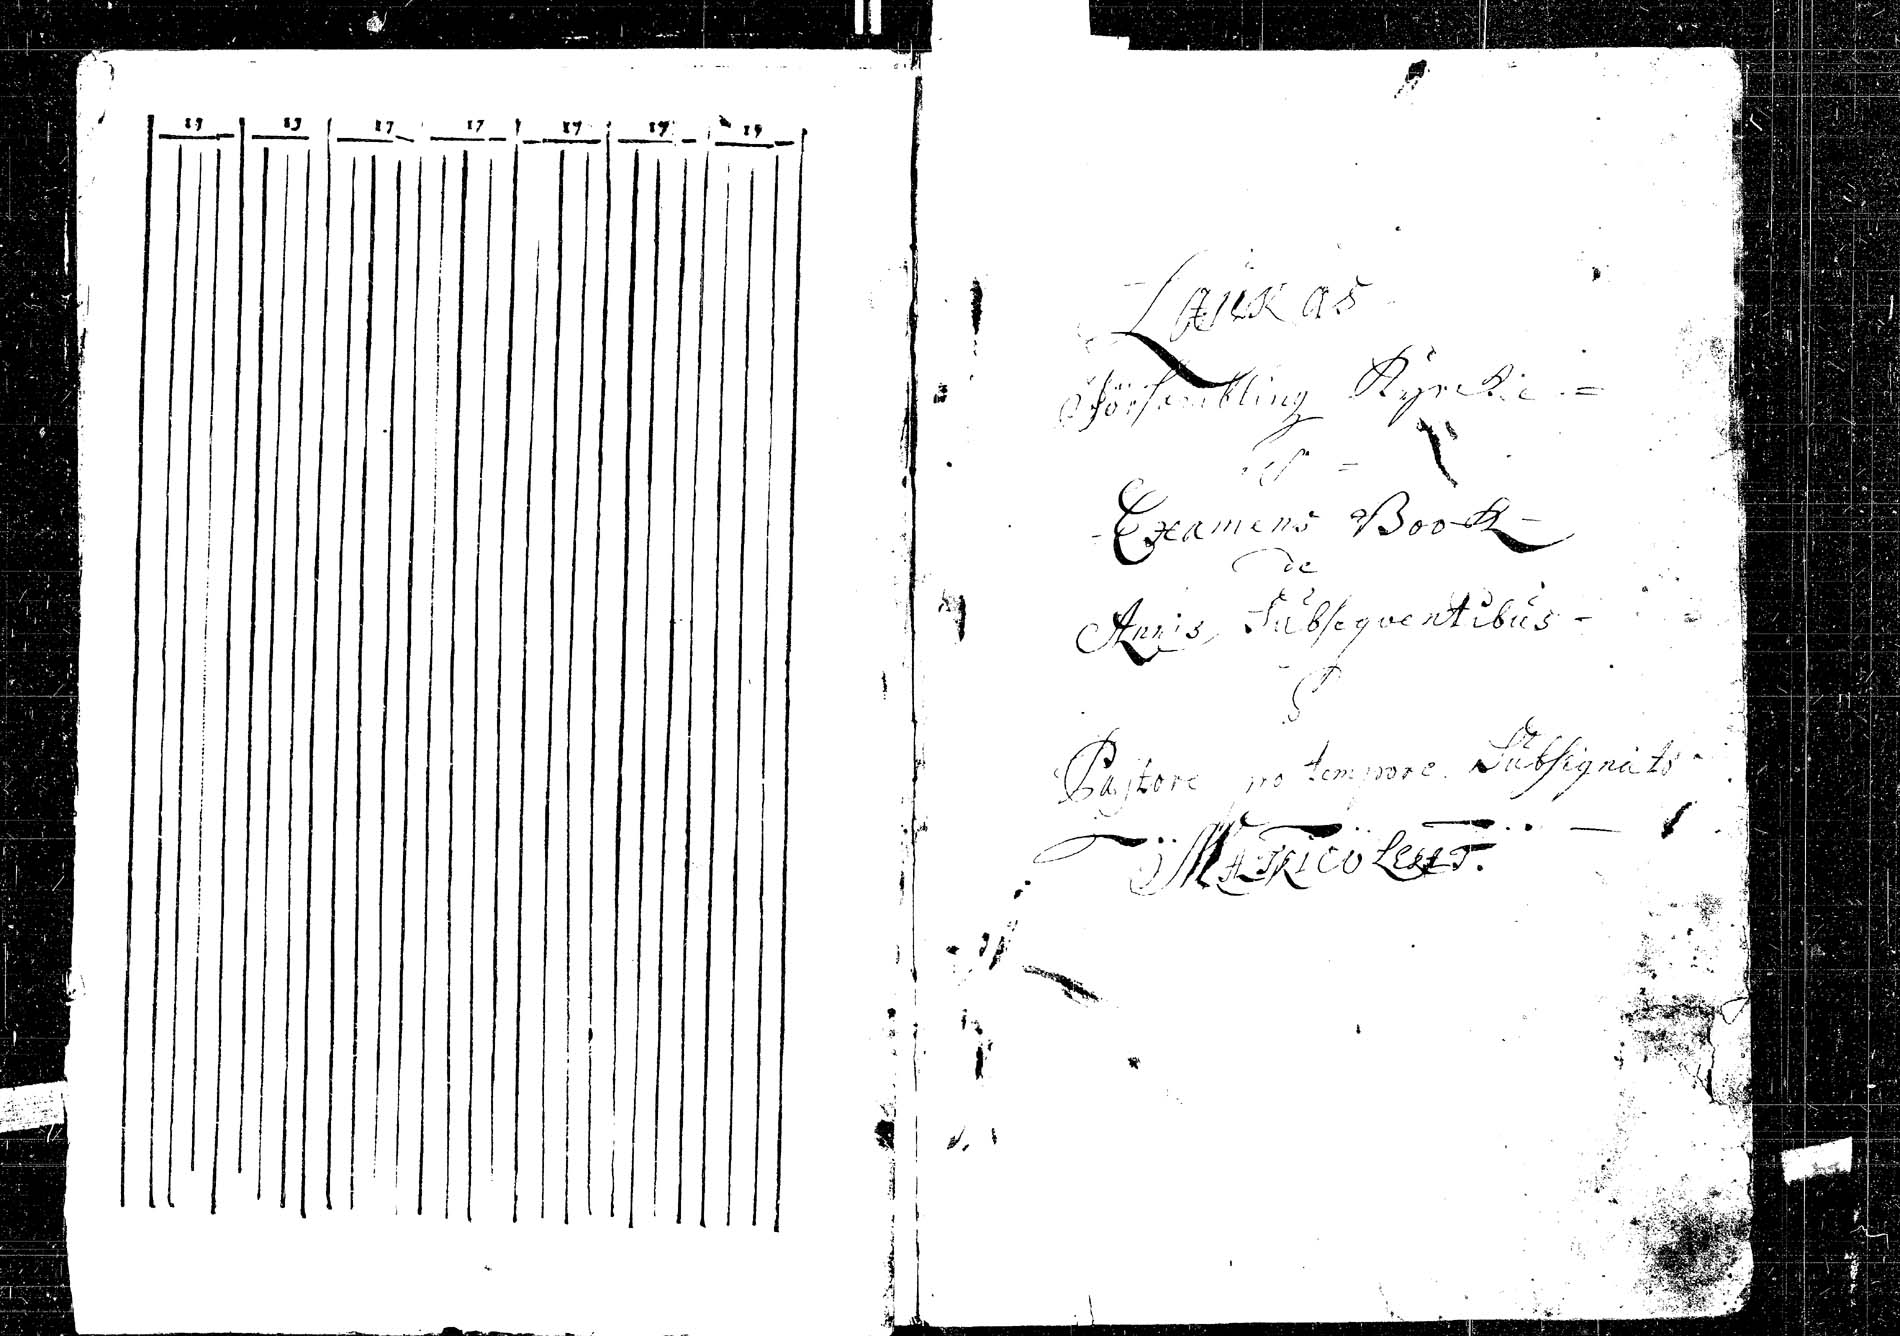 17 17 17 17 17 17 17
Laukas
Försambling Kyrckie =
och =
Examens Book
de
Annis Subsequentibus
Pastore pro tempore Subsignato